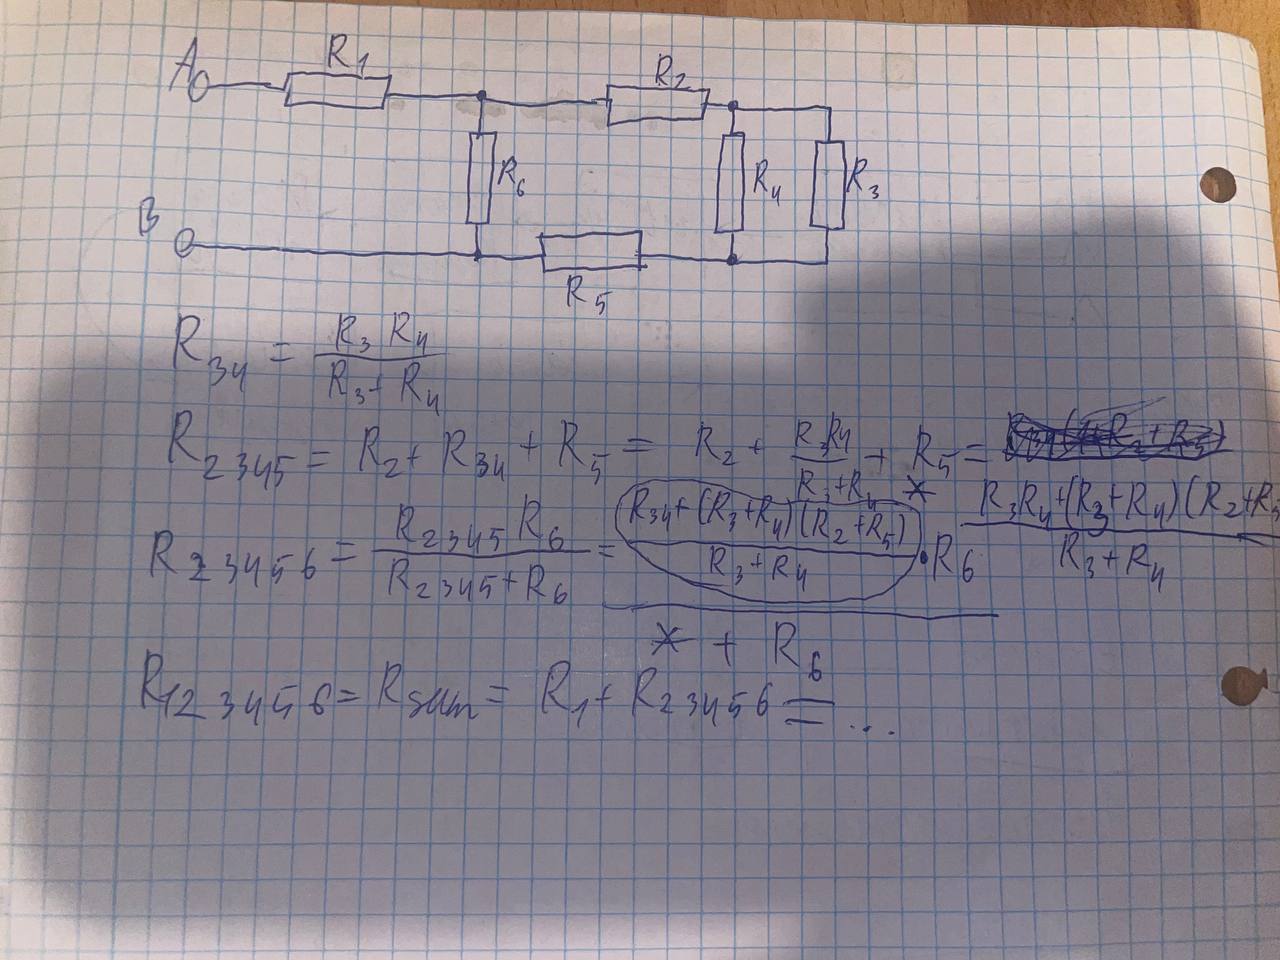 A R1 R2
R6 R4 R3
B
R5
R34 = R3 R4 / R3 + R4
R2345 = R2 + R34 + R5 = R2 + R3R4 / R3+R4 + R5 = R3R4+(R3+R4)(R2+R5 / R3+R4
R23456 = R2345 R6 / R2345+R6 = R34+(R3+R4)(R2+R5) / R3+R4 * · R6 / * + R6
R123456 = Rsum = R1+ R23456 = ...